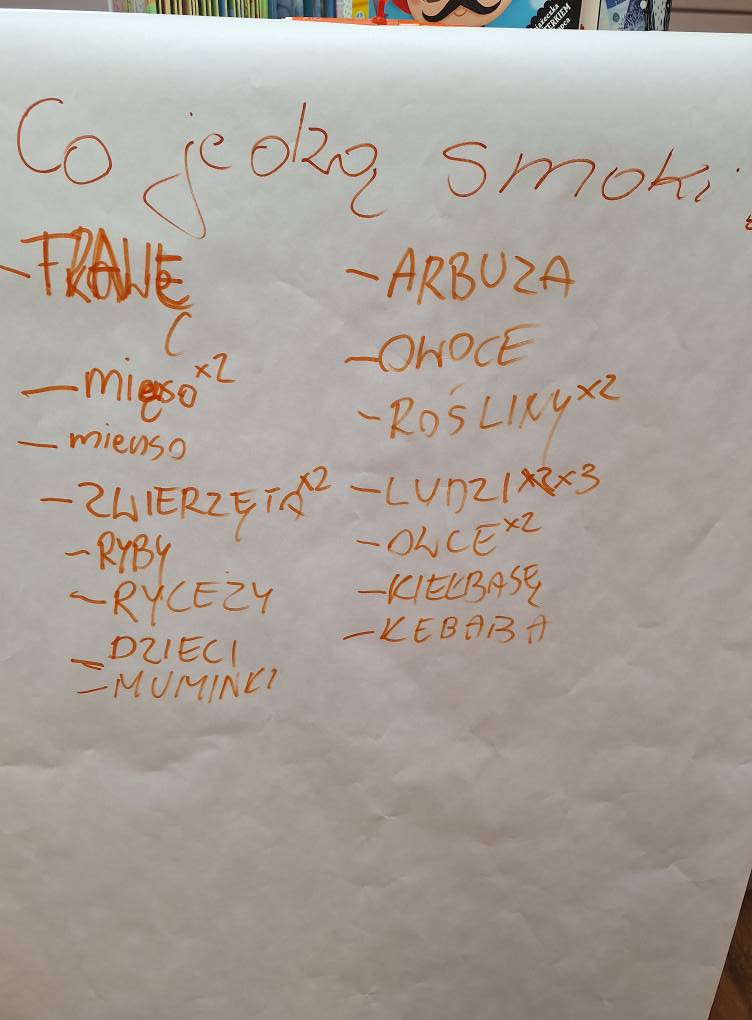 Co jedzą smoki?
- TRAWĘ
- mięso x2
- mienso
- ZWIERZĘTA x2
- RYBY
- RYCEŻY
- DZIECI
- MUMINKI
- ARBUZA
- OWOCE
- ROŚLINY x2
- LUDZI x3
- OWCE x2
- KIEŁBASĘ
- KEBABA